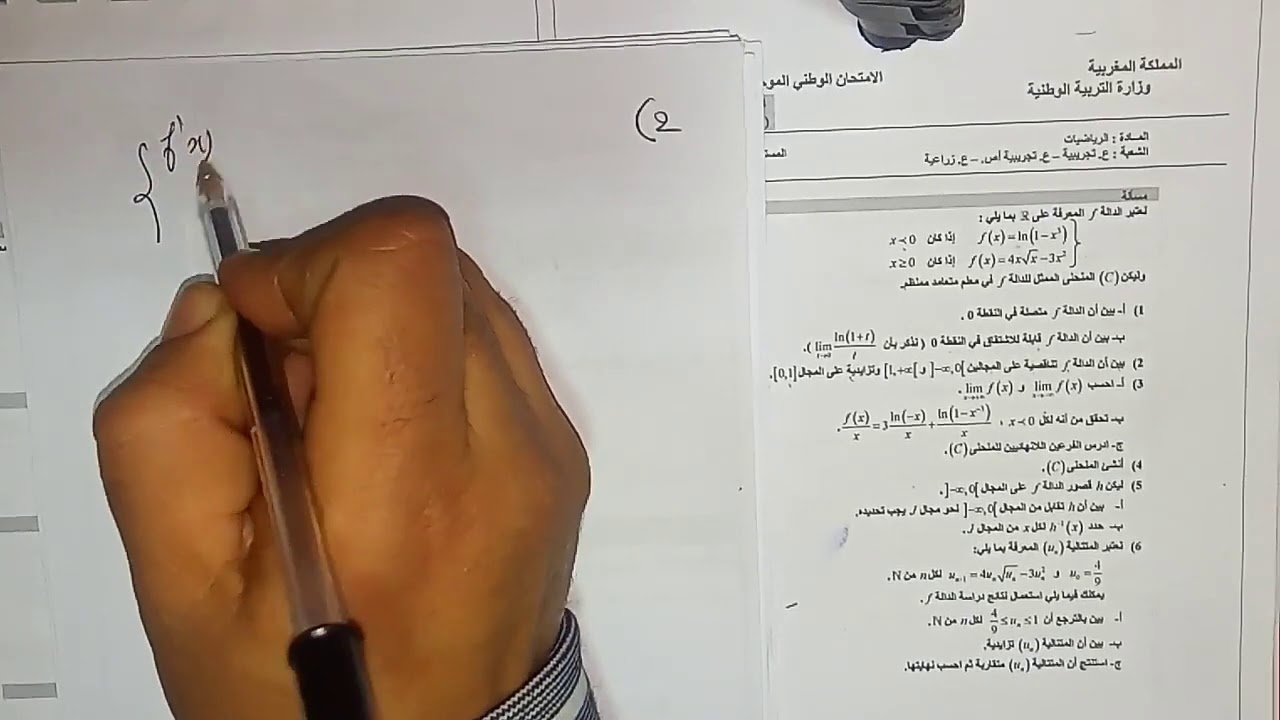 (2
{ f'(x)
المملكة المغربية
وزارة التربية الوطنية
الامتحان الوطني
المـادة : الرياضيات
الشعبة : ع. تجريبية – ع. تجريبية أص. – ع. زراعية
مسألة
لعتبر الدالة f المعرفة على ℝ بما يلي :
f(x)=ln(1-x³) إذا كان x≺0
f(x)=4x√x-3x² إذا كان x≥0
وليكن (C) المنحنى الممثل للدالة f في معلم متعامد ممنظم.
1) أ- بين أن الدالة f متصلة في النقطة 0 .
ب- بين أن الدالة f قابلة للاشتقاق في النقطة 0 ( نذكر بأن lim t→0 ln(1+t)/t ).
2) بين أن الدالة f تناقصية على المجالين ]-∞,0] و [1,+∞[ وتزايدية على المجال [0,1].
3) أ- احسب lim f(x) و lim f(x).
ب- تحقق من أنه لكل x≺0 ، f(x)/x = 3 ln(-x)/x + ln(1-x⁻³)/x .
ج- ادرس الفرعين اللانهائيين للمنحنى (C).
4) أنشئ المنحنى (C).
5) ليكن h قصور الدالة f على المجال ]-∞,0].
أ- بين أن h تقابل من المجال ]-∞,0] نحو مجال J يجب تحديده.
ب- حدد h⁻¹(x) لكل x من المجال J.
6) نعتبر المتتالية (uₙ) المعرفة بما يلي:
u₀=4/9 و uₙ₊₁=4uₙ√uₙ-3uₙ² لكل n من ℕ.
يمكنك فيما يلي استعمال نتائج دراسة الدالة f.
أ- بين بالترجع أن 4/9≤uₙ≤1 لكل n من ℕ.
ب- بين أن المتتالية (uₙ) تزايدية.
ج- استنتج أن المتتالية (uₙ) متقاربة ثم احسب نهايتها.